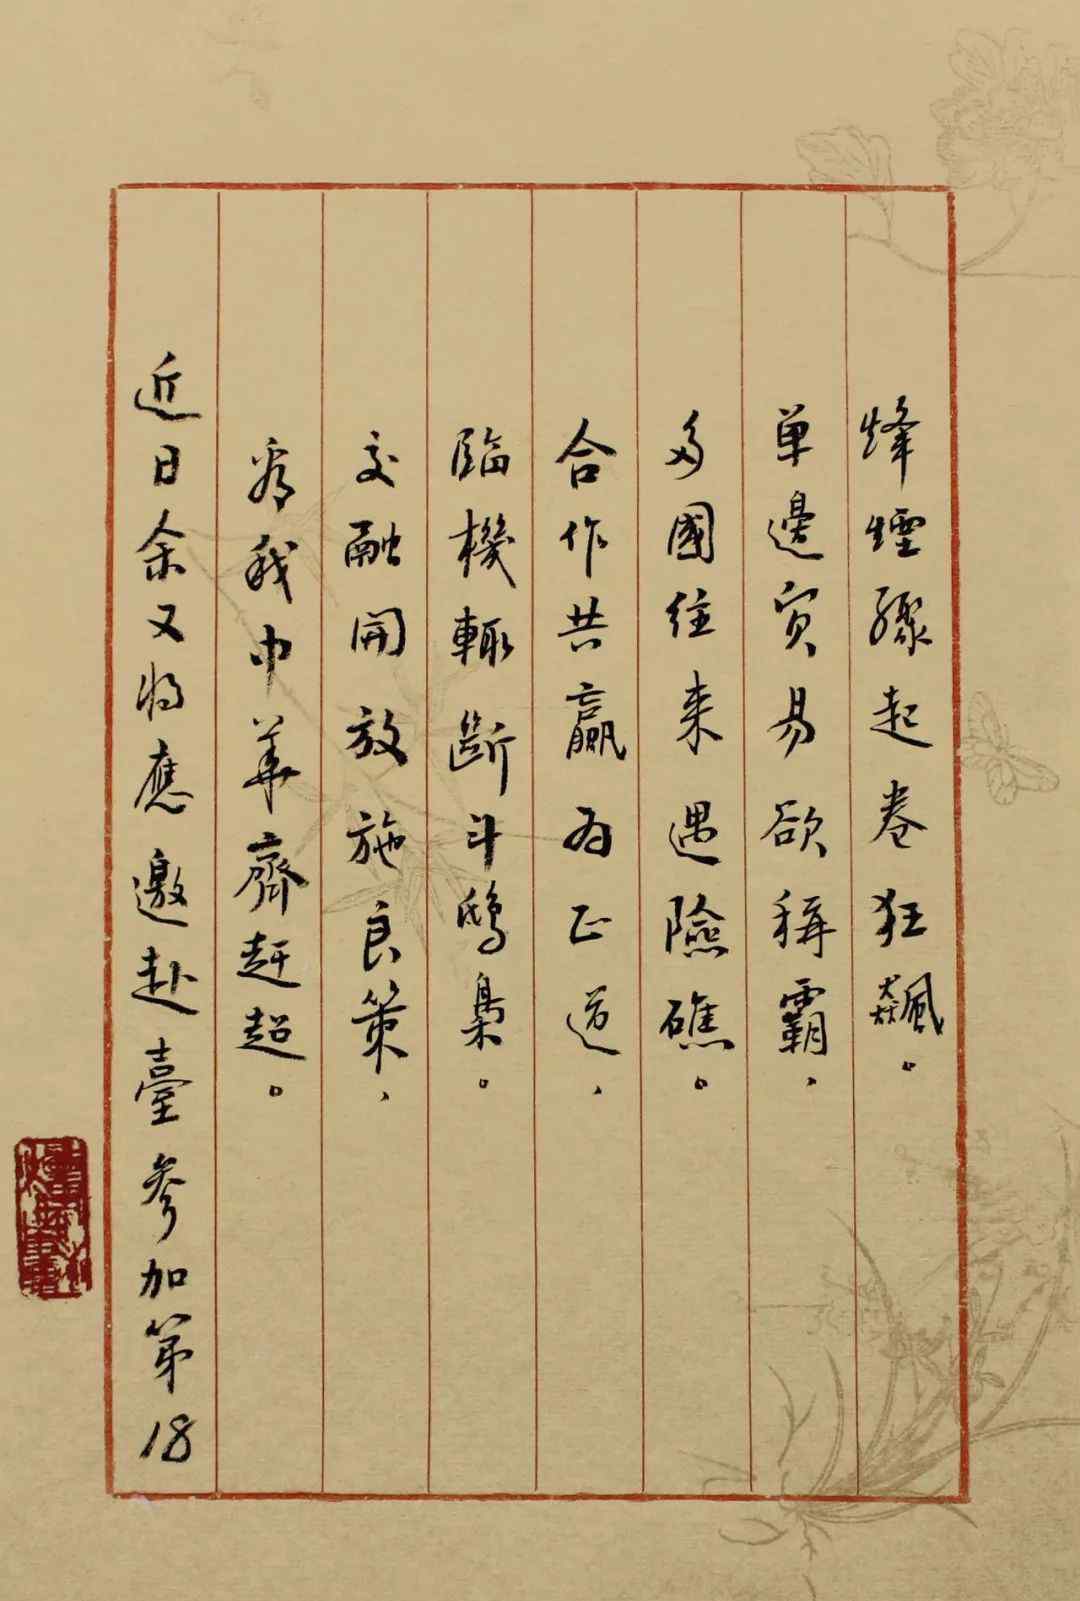 烽煙驟起卷狂飆。
單邊貿易欲稱霸，
多國往來遇險礁。
合作共贏為正道，
臨機輒斷斗鴟梟。
交融開放施良策，
看我中華齊赶超。
近日余又將應邀赴臺參加第18